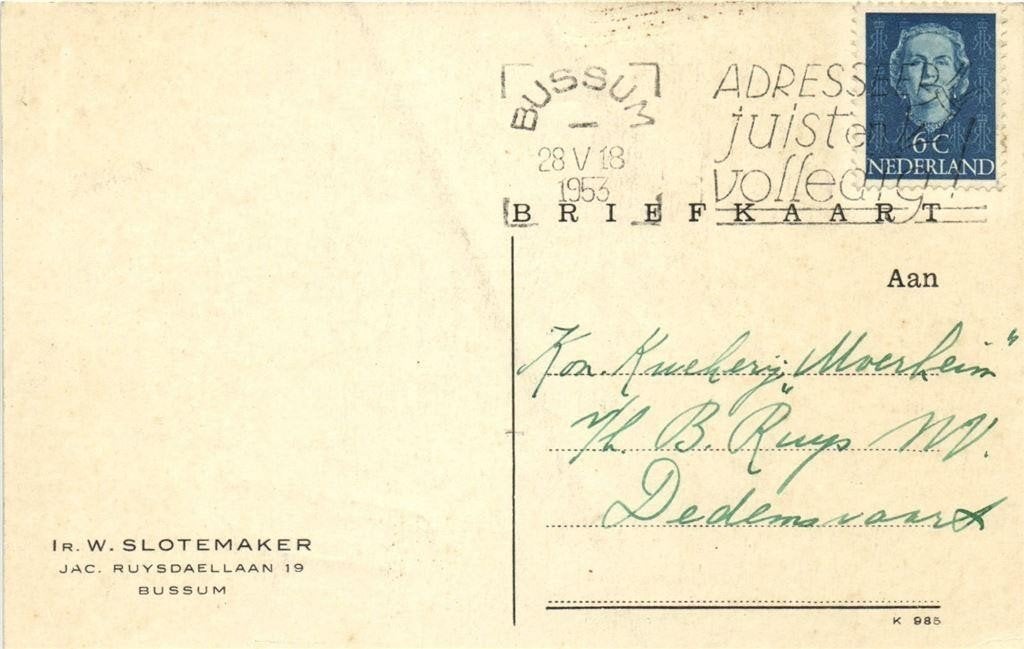 BUSSUM
28 V 18
1953
ADRESSEER
juist en
volledig!
6 C
NEDERLAND
BRIEFKAART
Aan
Kon. Kwekerij „Moerheim"
v/h. B. Ruys NV.
Dedemsvaart
IR. W. SLOTEMAKER
JAC. RUYSDAELLAAN 19
BUSSUM
K 985